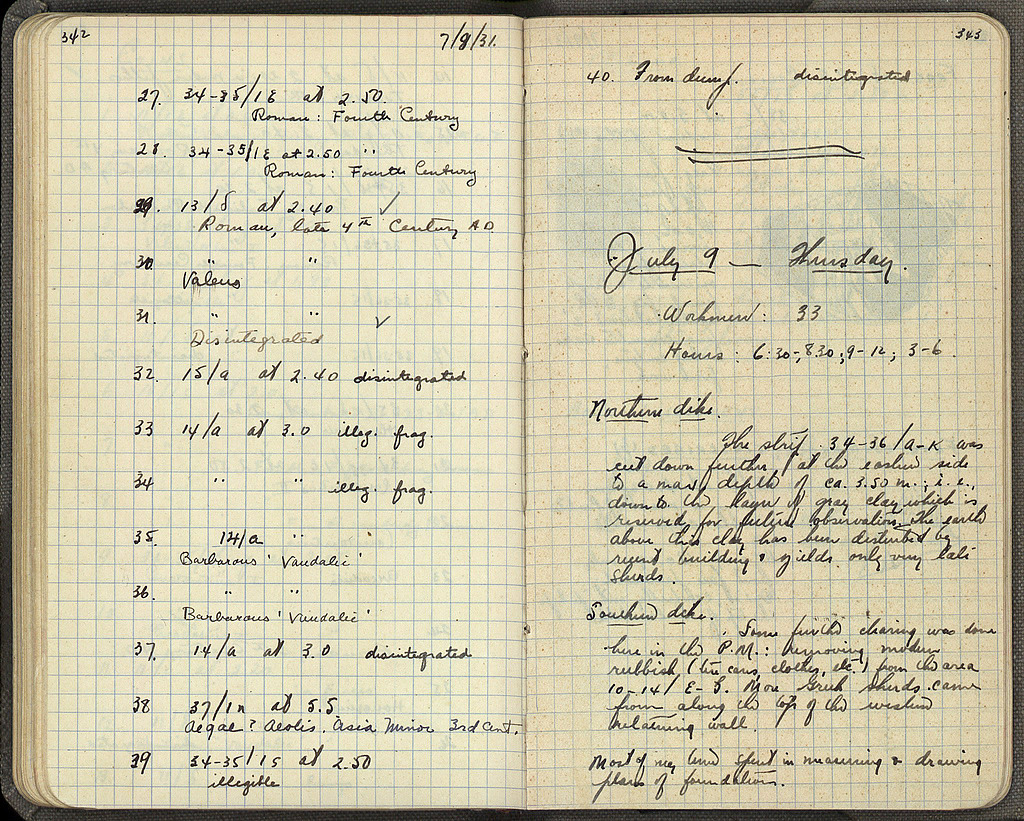 342
7/8/31.
27. 34-35/1E at 2.50.
Roman: Fourth Century
28. 34-35/1E at 2.50 "
Roman: Fourth Century
29. 13/5 at 2.40 ✓
Roman, late 4th Century AD
30. " "
Valens
31. " " ✓
Disintegrated
32. 15/a at 2.40 disintegrated
33 14/a at 3.0 illeg. frag.
34 " " illeg. frag.
35. 14/a "
Barbarous 'Vandalic'
36. " "
Barbarous 'Vandalic'
37. 14/a at 3.0 disintegrated
38 37/1n at 5.5
Aegae? Aeolis. Asia Minor 3rd Cent.
39 34-35/15 at 2.50
illegible
343
40. From dump. disintegrated
July 9 — Thursday.
Workmen: 33
Hours: 6:30-, 8.30; 9-12; 3-6.
Northern dike.
The strip 34-36/a-K was
cut down further, at the eastern side
to a max. depth of ca. 3.50 m.; i.e.,
down to the layer of gray clay which is
reserved for future observation. The earth
above this clay has been disturbed by
recent building & yields only very late
sherds.
Southern dike.
Some further clearing was done
here in the P.M.: removing modern
rubbish (tin cans, clothes, etc.) from the area
10-14/E-. More Greek sherds came
from along the top of the western
retaining wall.
Most of my time spent in measuring & drawing
plans of foundations.